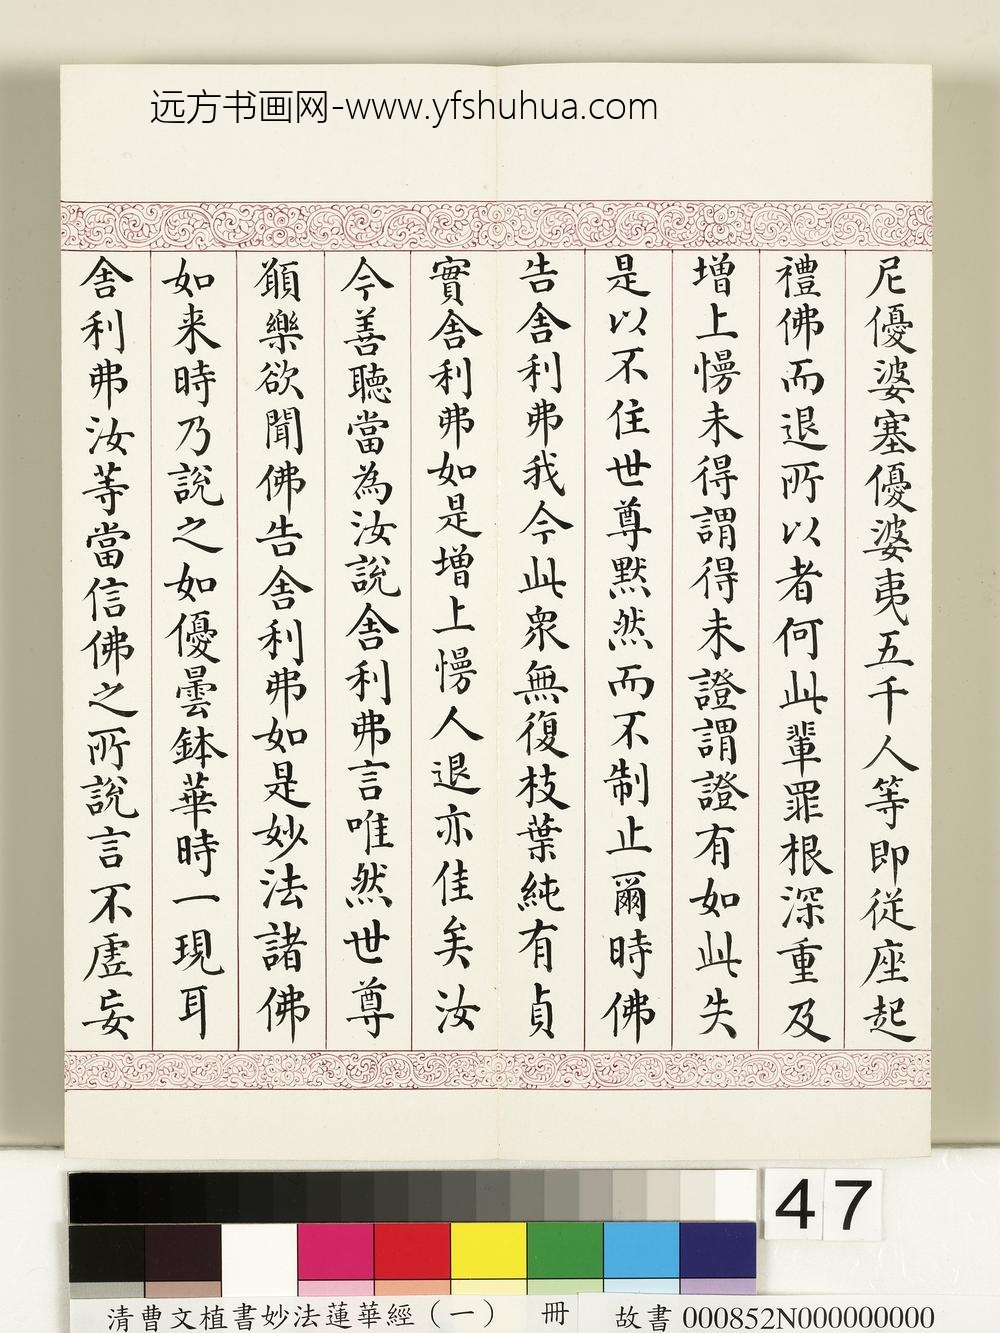 远方书画网-www.yfshuhua.com
尼優婆塞優婆夷五千人等即從座起
禮佛而退所以者何此輩罪根深重及
增上慢未得謂得未證謂證有如此失
是以不住世尊默然而不制止爾時佛
告舍利弗我今此眾無復枝葉純有貞
實舍利弗如是增上慢人退亦佳矣汝
今善聽當為汝說舍利弗言唯然世尊
願樂欲聞佛告舍利弗如是妙法諸佛
如来時乃說之如優曇鉢華時一現耳
舍利弗汝等當信佛之所說言不虛妄
47
清曹文植書妙法蓮華經（一） 冊 故書 000852N000000000